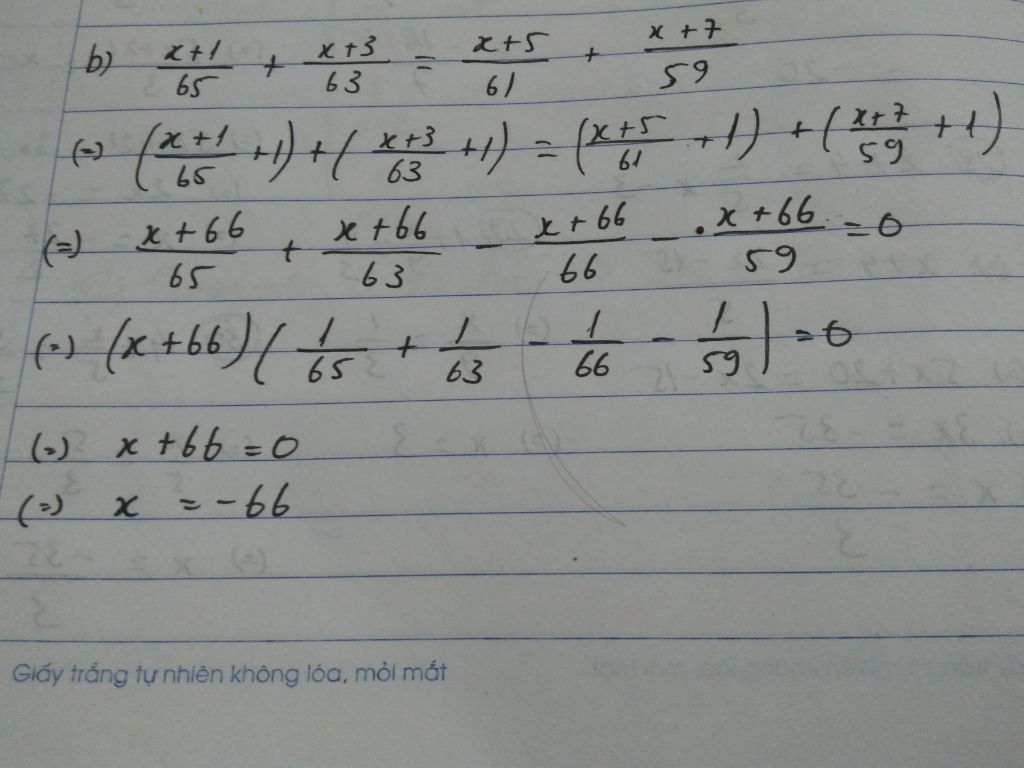 b) \frac{x+1}{65} + \frac{x+3}{63} = \frac{x+5}{61} + \frac{x+7}{59}
(=) (\frac{x+1}{65} + 1) + (\frac{x+3}{63} + 1) = (\frac{x+5}{61} + 1) + (\frac{x+7}{59} + 1)
(=) \frac{x+66}{65} + \frac{x+66}{63} - \frac{x+66}{66} - \frac{x+66}{59} = 0
(=) (x+66)(\frac{1}{65} + \frac{1}{63} - \frac{1}{66} - \frac{1}{59}) = 0
(=) x+66 = 0
(=) x = -66
Giấy trắng tự nhiên không lóa, mỏi mắt